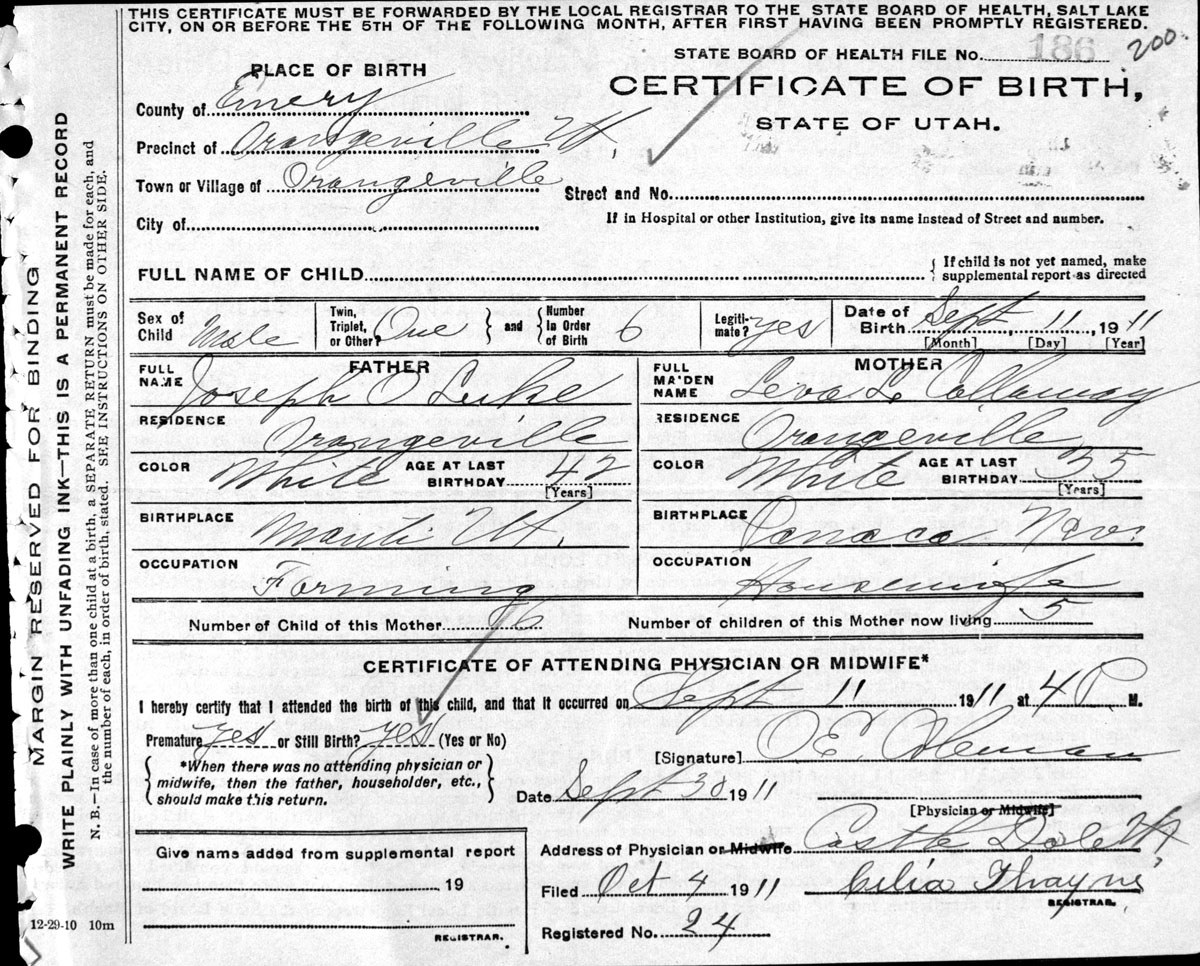 THIS CERTIFICATE MUST BE FORWARDED BY THE LOCAL REGISTRAR TO THE STATE BOARD OF HEALTH, SALT LAKE
CITY, ON OR BEFORE THE 5TH OF THE FOLLOWING MONTH, AFTER FIRST HAVING BEEN PROMPTLY REGISTERED.
STATE BOARD OF HEALTH FILE No. 186 200.
PLACE OF BIRTH
CERTIFICATE OF BIRTH,
STATE OF UTAH.
County of Emery
Precinct of Orangeville Ut,
Town or Village of Orangeville
Street and No.
City of
If in Hospital or other Institution, give its name instead of Street and number.
FULL NAME OF CHILD
{ If child is not yet named, make
supplemental report as directed
Sex of Child Male
Twin, Triplet, or Other? One } and { Number In Order of Birth 6
Legitimate? yes
Date of Birth Sept, 11, 1911
[Month] [Day] [Year]
FATHER
FULL NAME Joseph O Luke
RESIDENCE Orangeville
COLOR White AGE AT LAST BIRTHDAY 42
[Years]
BIRTHPLACE Manti Ut.
OCCUPATION Farming
MOTHER
FULL MAIDEN NAME Leva L Callaway
RESIDENCE Orangeville
COLOR White AGE AT LAST BIRTHDAY 35
[Years]
BIRTHPLACE Panaca Nev.
OCCUPATION Housewife
Number of Child of this Mother 6 Number of children of this Mother now living 5
CERTIFICATE OF ATTENDING PHYSICIAN OR MIDWIFE*
I hereby certify that I attended the birth of this child, and that it occurred on Sept 11 1911 at 4 P M.
Premature yes or Still Birth? yes (Yes or No)
*When there was no attending physician or
midwife, then the father, householder, etc.,
should make this return.
[Signature] O.E.
Date Sept 30 1911
[Physician or Midwife]
Address of Physician or Midwife Castle Dale Ut,
Filed Oct 4 1911 Celia Thayne
REGISTRAR.
Registered No. 24
Give name added from supplemental report
19
REGISTRAR.
12-29-10 10m
MARGIN RESERVED FOR BINDING
WRITE PLAINLY WITH UNFADING INK—THIS IS A PERMANENT RECORD
N. B.—In case of more than one child at a birth, a SEPARATE RETURN must be made for each, and
the number of each, in order of birth, stated. SEE INSTRUCTIONS ON OTHER SIDE.